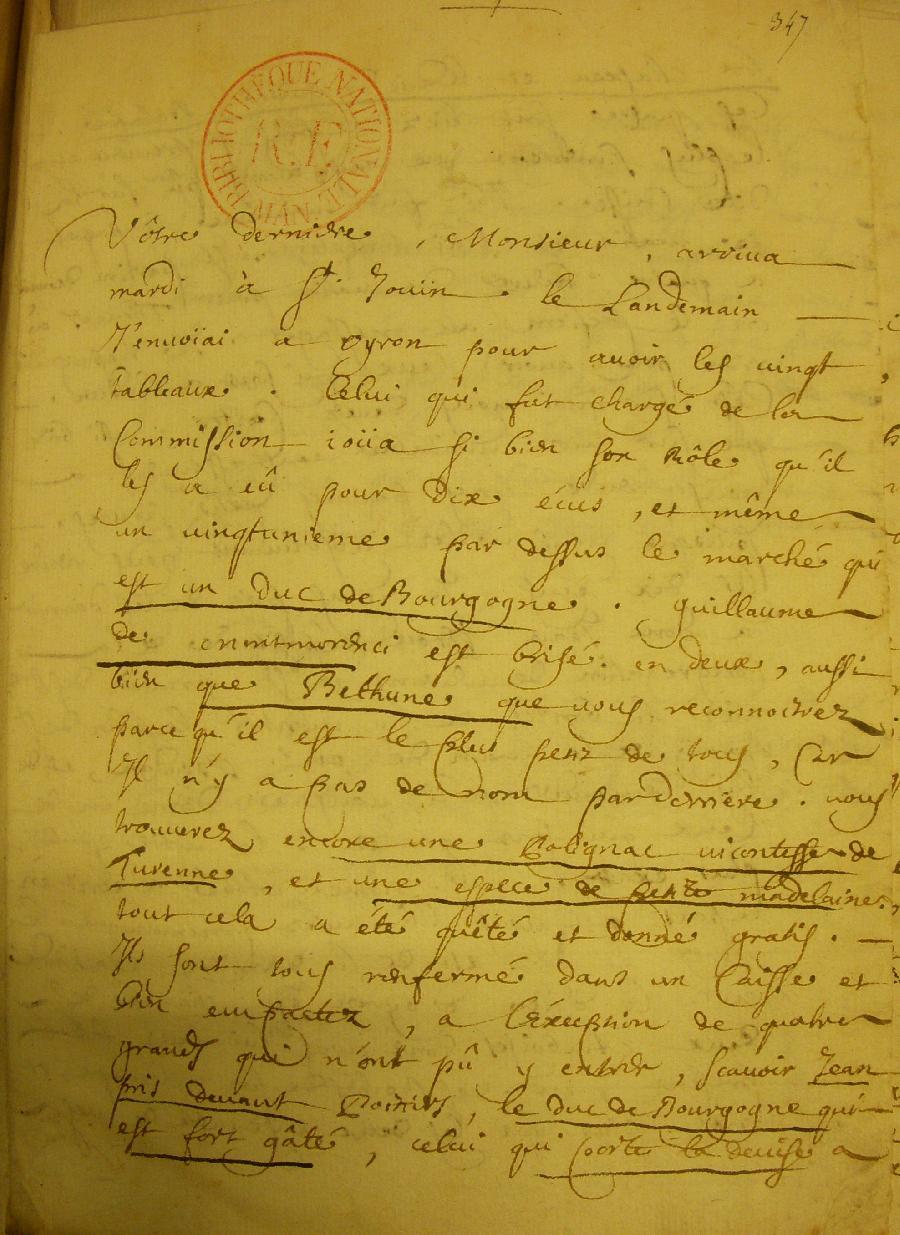 347
BIBLIOTHEQUE NATIONALE MAN.
R.F
Vôtre derniere, Monsieur, arriva
mardi à St. Jouin. le Landemain
J'envoïai a oyron pour avoir les vingt
tableaux. Celui qui fut chargé de la
Commission ioüa si bien son Rôle qu'il
les a eû pour dix écus, et même
un vingtunieme par dessus le marché qui
est un Duc de Bourgogne. guillaume
de montmorenci est brisé en deux, aussi
bien que Bethune que vous reconnoitrez
parce qu'il est le plus petit de tous, Car
Il n'y a pas de nom parderriere. vous
trouverez encore une Polignac vicontesse de
Turenne, et une espece de petite madelaine.
tout cela a été quêté et donné gratis.
Ils sont tous renfermé dans un Caisse et
bien empactez, a l'éxception de quatre
grands qui n'ont pû y entrer, scavoir Jean
pris devant Poitiers, le Duc de Bourgogne qui
est fort gâté, celui qui porte la devise a